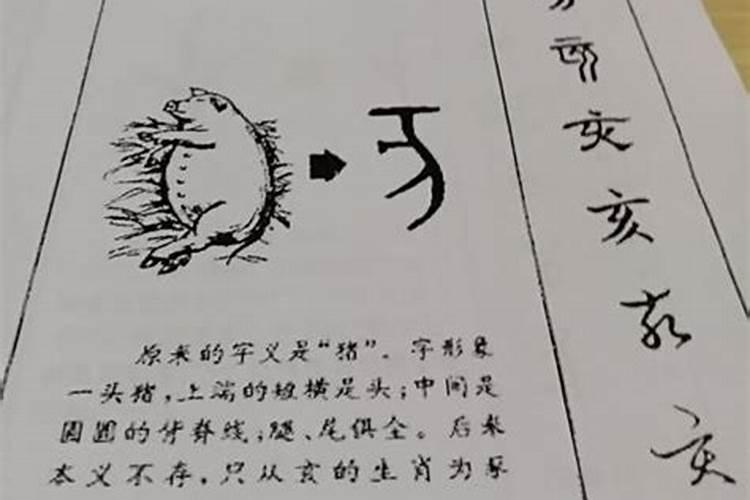 原来的字义是“猪”。字形象
一头猪,上端的短横是头;中间是
圆圆的背脊线;腿、尾俱全。后来
本义不存,只从亥的生肖为豕
亥
亥
亥
亥